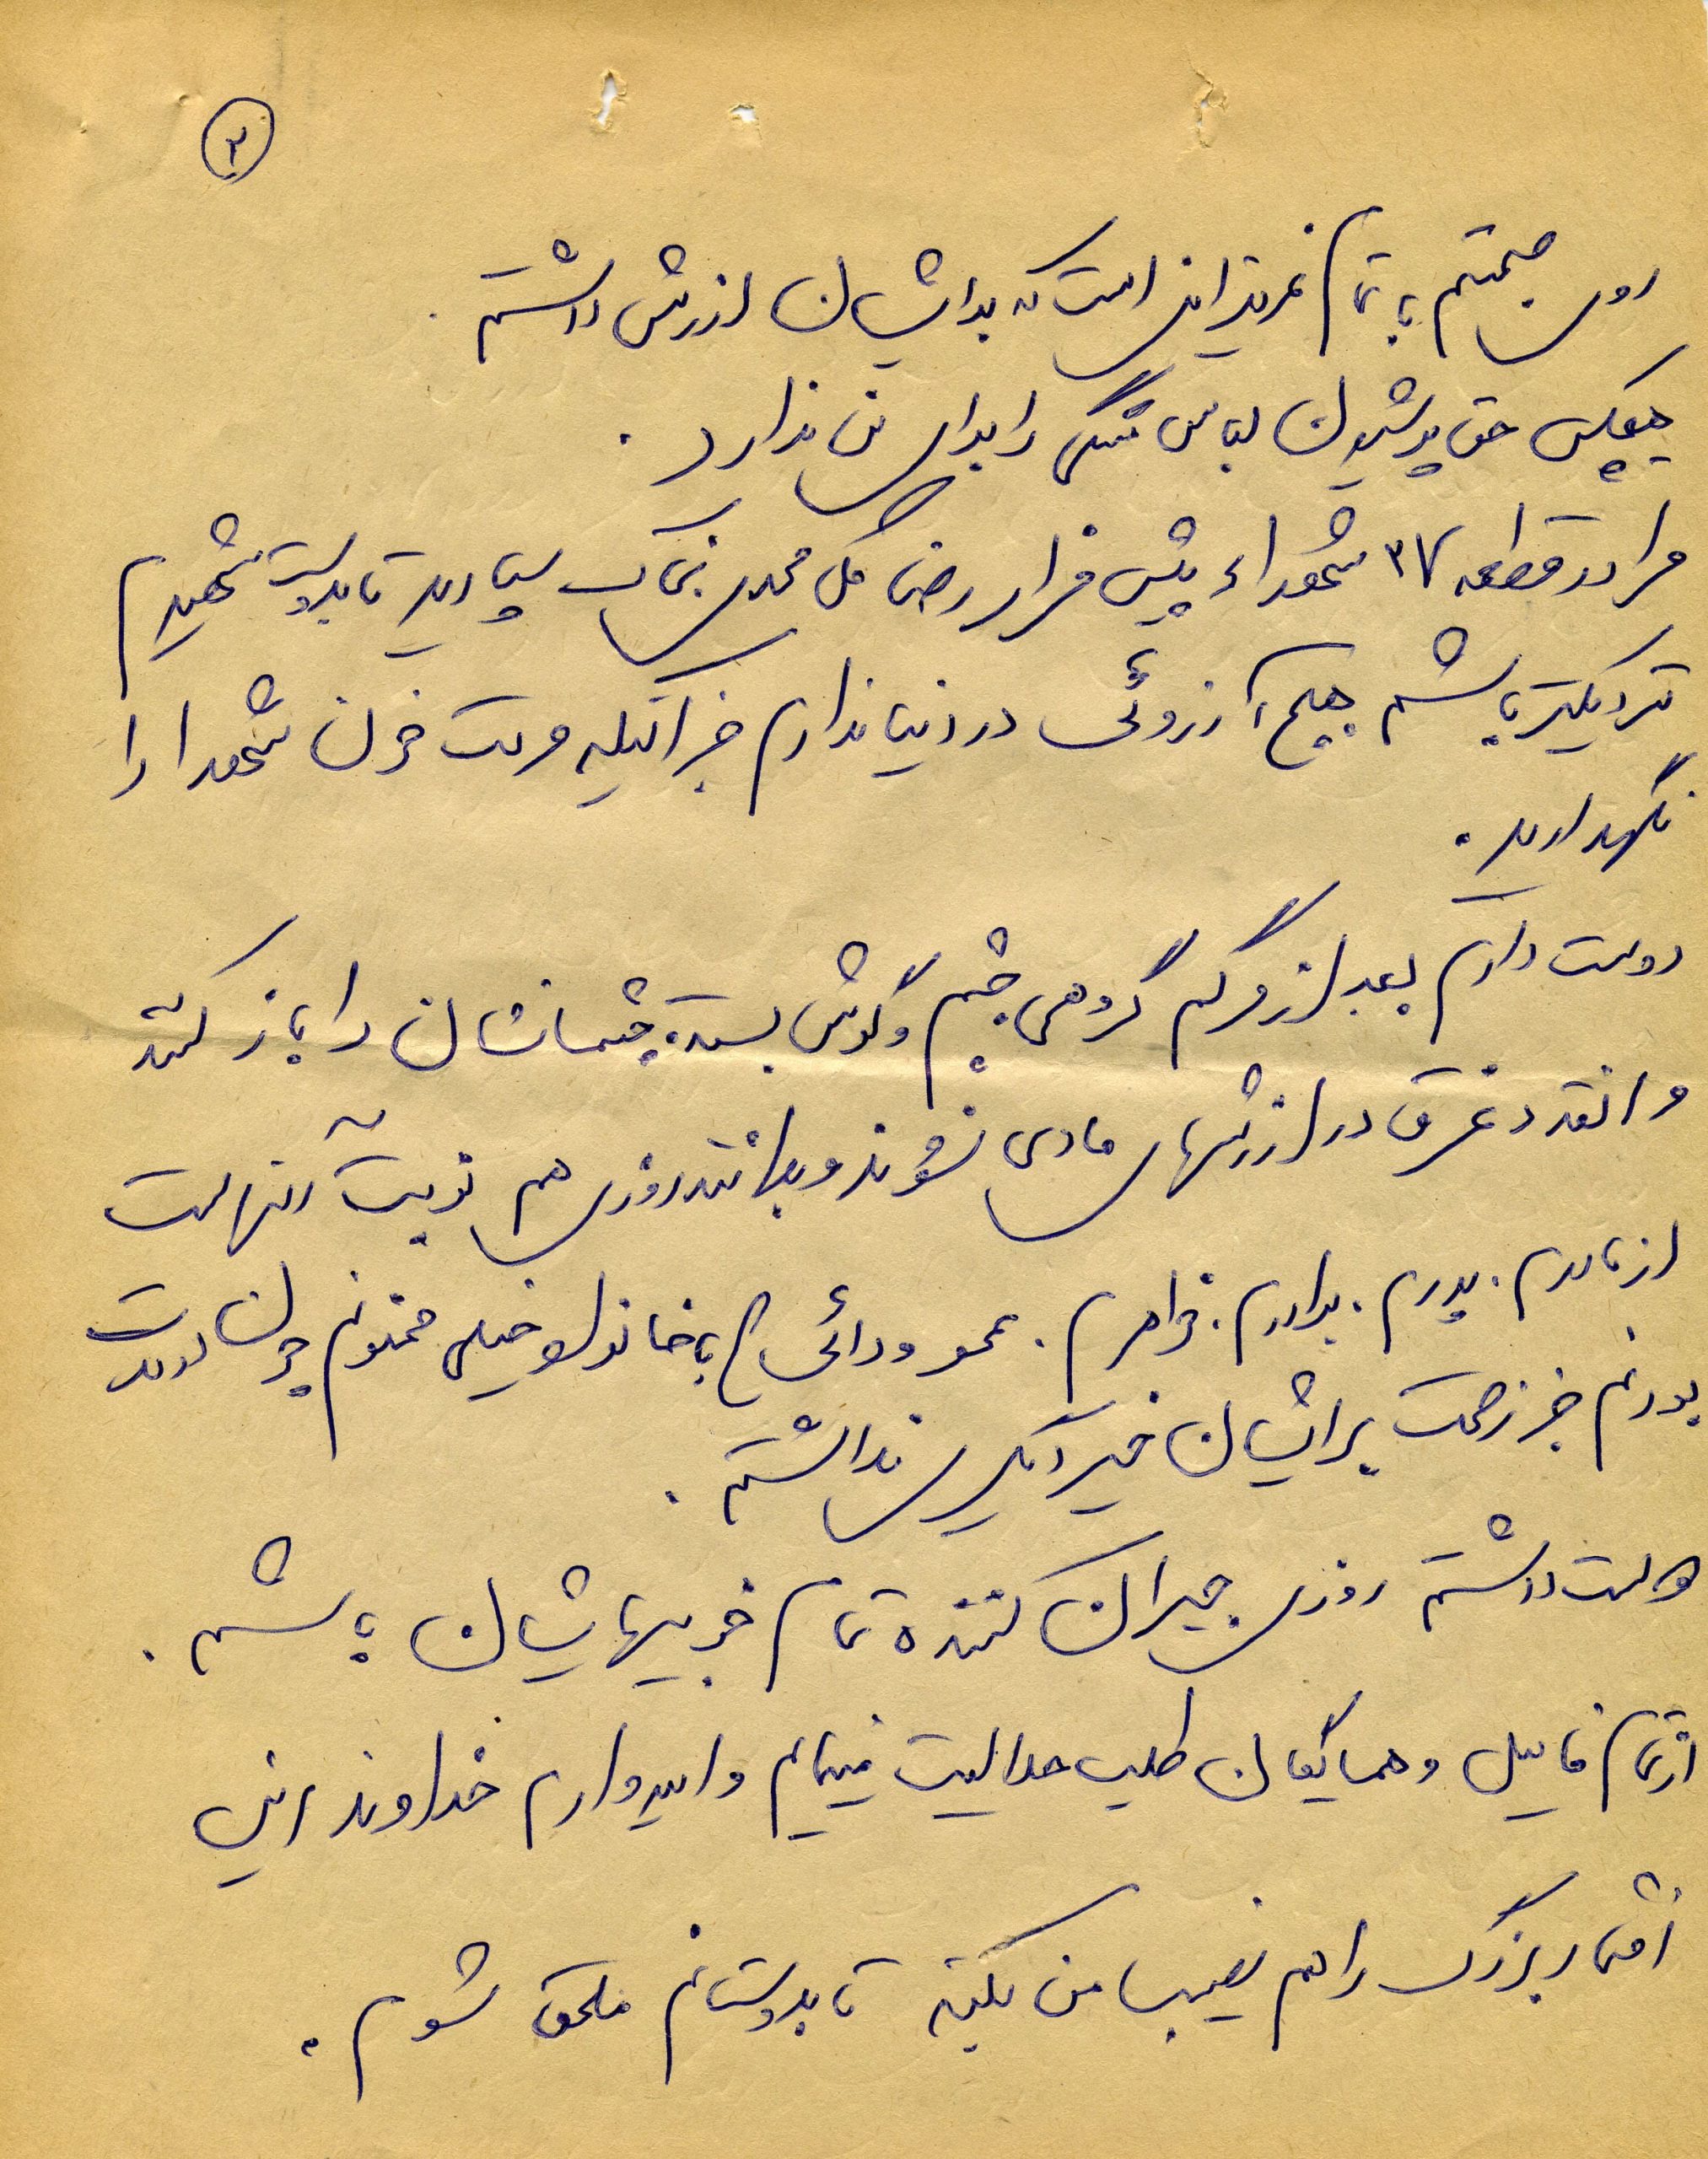 ۲
روی صحبتم با تمام عزیزانی است که برایشان ارزش داشتم.
هیچکس حق پوشیدن لباس مشکی را برای من ندارد.
مرا در قطعه ۳۷ شهداء پیش مزار رضا گل محمدی بخاک بسپارید تا بدوست شهیدم
نزدیکتر باشم هیچ آرزوئی در دنیا ندارم جز آنکه حرمت خون شهدا را
نگهدارید.
دوست دارم بعد از مرگم گروهی چشم و گوش بسته، چشمانشان را باز کنند
و انقدر غرق در ارزشهای مادی نشوند و بدانند روزی هم نوبت آنهاست
از مادرم. پدرم. برادرم. خواهرم. عمو و دائی با خانواده خیلی ممنونم چون
بودنم جز زحمت برایشان خیر دیگری نداشتم.
دوست داشتم روزی جبران کننده تمام خوبیهایشان باشم.
از تمام فامیل و همسایگان طلب حلالیت مینمایم و امیدوارم خداوند این
افتخار بزرگ را هم نصیب من بکند تا بدوستانم ملحق شوم.